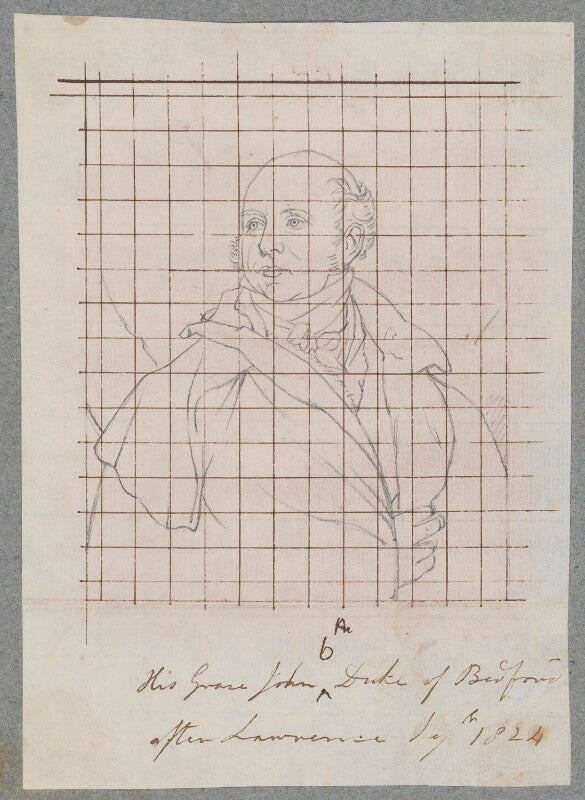 His Grace John 6th Duke of Bedford
after Lawrence 1824